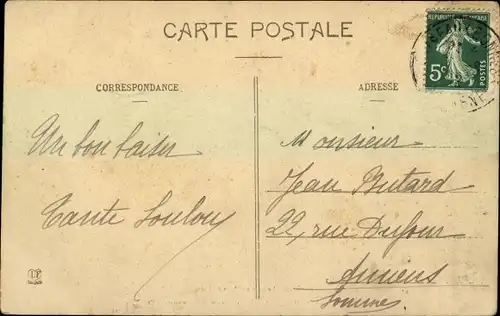 CARTE POSTALE
REPUBLIQUE FRANCAISE
5c POSTES
CORRESPONDANCE
ADRESSE
Un bon baiser
Tante Loulou
Monsieur
Jean Butard
22, rue Dufour
Amiens
Somme